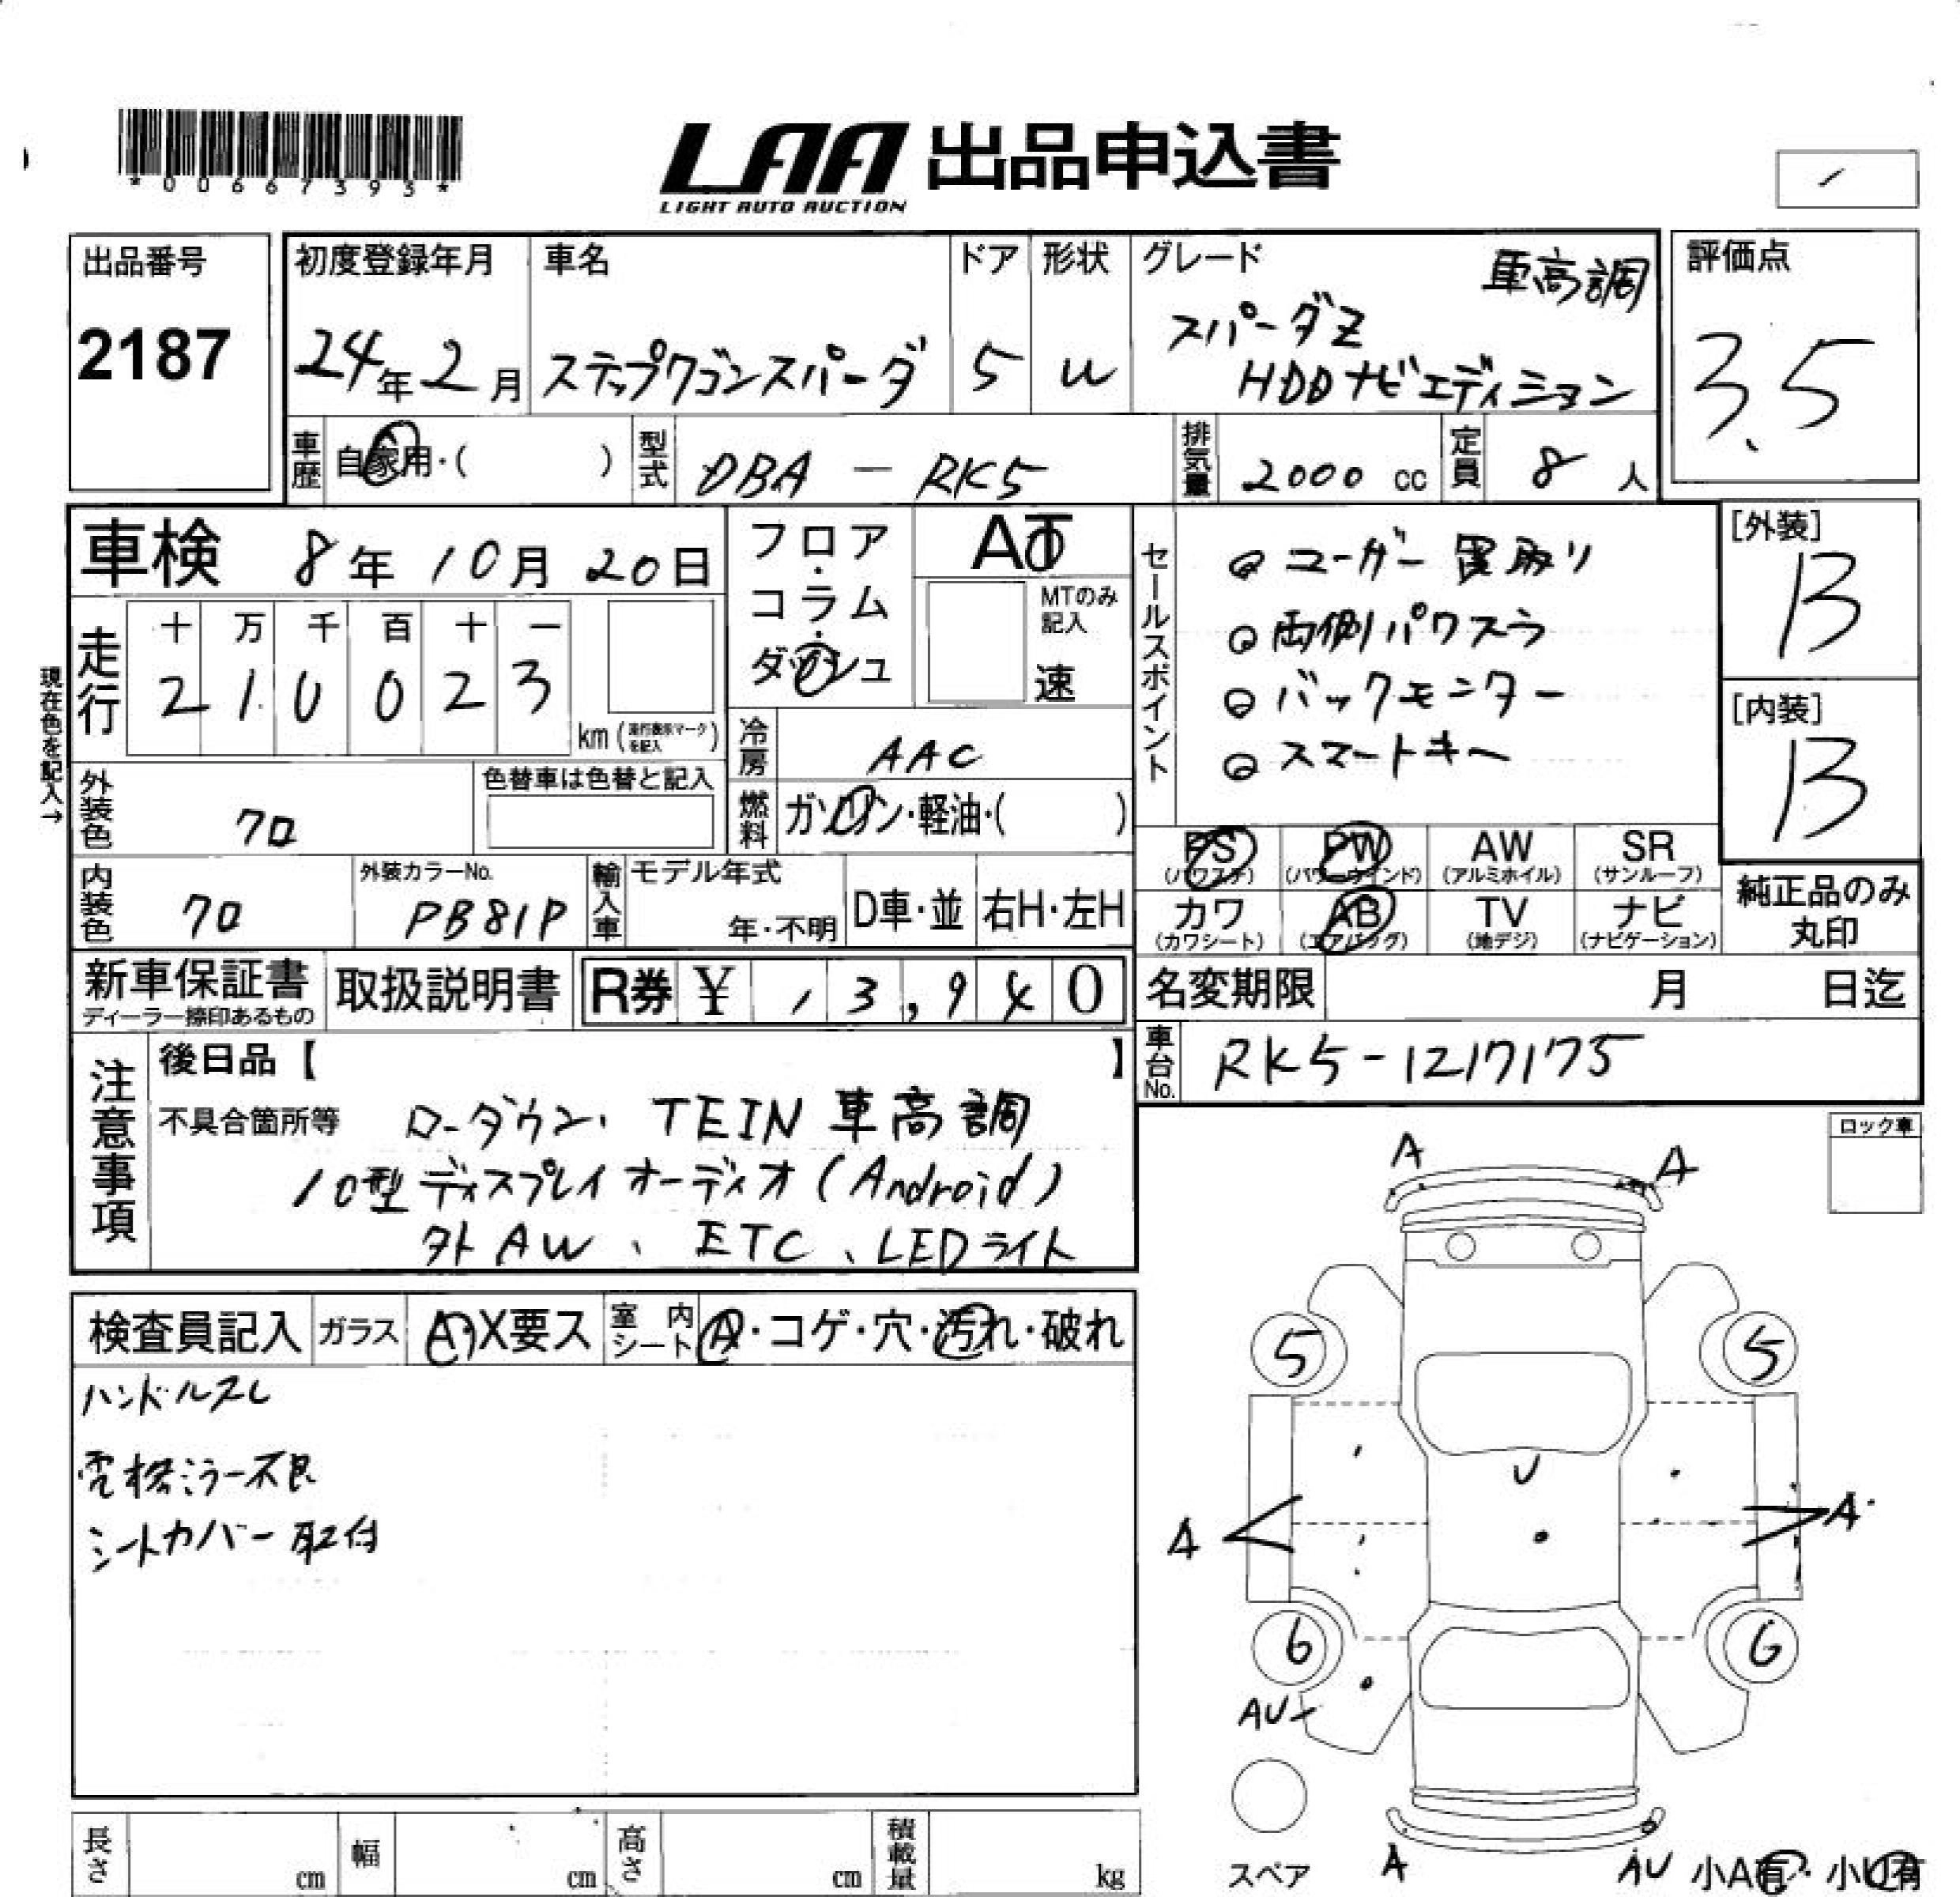 *00667393*
LAA 出品申込書
LIGHT AUTO AUCTION
出品番号
2187
初度登録年月
24年2月
車名
ステップワゴンスパーダ
ドア
5
形状
W
グレード
車高調
スパーダZ
HDDナビエディション
評価点
3.5
車歴
自家用・( )
型式
DBA－RK5
排気量
2000 cc
定員
8人
車検 8年10月20日
フロア・コラム・ダッシュ
AT
MTのみ記入
速
セールスポイント
◎ユーザー買取り
◎両側パワスラ
◎バックモニター
◎スマートキー
[外装]
B
[内装]
B
現在色を記入→
走行
十 万 千 百 十 一
2 1 0 0 2 3
km(走行表示マークを記入)
冷房
AAC
外装色
クロ
色替車は色替と記入
燃料
ガソリン・軽油・( )
PS
(パワステ)
PW
(パワーウインド)
AW
(アルミホイル)
SR
(サンルーフ)
内装色
クロ
外装カラーNo.
PB81P
輸入車
モデル年式
年・不明
D車・並
右H・左H
カワ
(カワシート)
AB
(エアバッグ)
TV
(地デジ)
ナビ
(ナビゲーション)
純正品のみ
丸印
新車保証書
ディーラー捺印あるもの
取扱説明書
R券 ¥ 13,940
名変期限 月 日迄
車台No.
RK5-1217175
注意事項
後日品【 】
不具合箇所等 ローダウン、TEIN 車高調
10型ディスプレイオーディオ(Android)
外AW、ETC、LEDライト
ロック車
検査員記入
ガラス
A・X要ス
室内シート
A・コゲ・穴・汚れ・破れ
ハンドルスレ
電格ミラー不良
シートカバー取付
A
A
5
5
U
A
A
6
6
AU
スペア
A
AU
小A有・小U有
長さ cm
幅 cm
高さ cm
積載量 kg